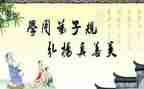 學用弟子規
弘揚真善美